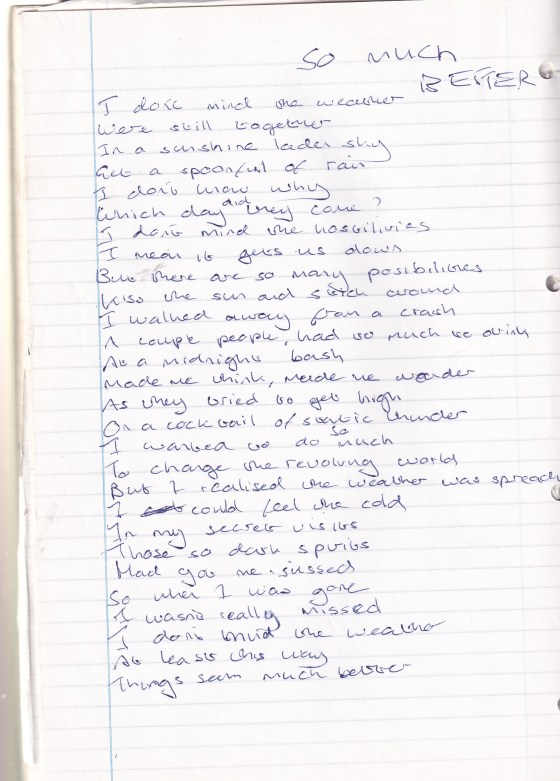 SO MUCH
BETTER
I don't mind the weather
Were still together
In a sunshine laden sky
Get a spoonful of rain
I don't know why
Which day did they come?
I don't mind the hostilities
I mean it gets us down
But there are so many possibilities
Kiss the sun and stick around
I walked away from a crash
A couple people, had so much to drink
At a midnight bash
Made me think, made me wonder
As they tried to get high
On a cocktail of static thunder
I wanted to do so much
To change the revolving world
But I realised the weather was spreading
I could feel the cold
In my secret visits
Those so dark spirits
Had got me sussed
So when I was gone
I wasn't really missed
I don't mind the weather
At least this way
Things seem much better